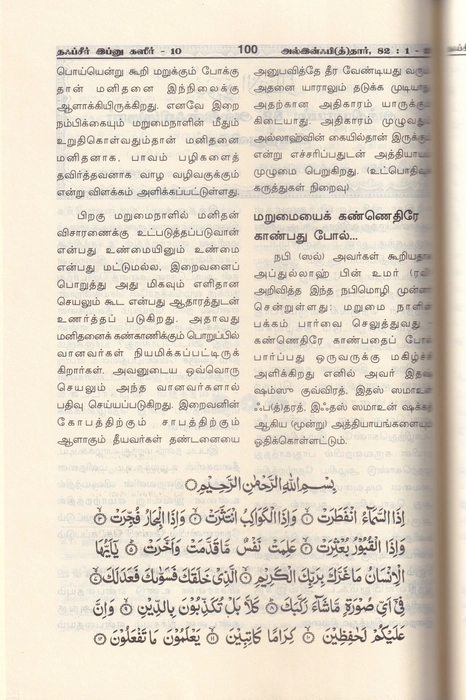 தஃப்சீர் இப்னு கஸீர் - 10
100
அல்இன்ஃபி(த்)தார், 82 : 1 -
பொய்யென்று கூறி மறுக்கும் போக்கு
தான் மனிதனை இந்நிலைக்கு
ஆளாக்கியிருக்கிறது. எனவே இறை
நம்பிக்கையும் மறுமைநாளின் மீதும்
உறுதிகொள்வதும்தான் மனிதனை
மனிதனாக, பாவம் பழிகளைத்
தவிர்த்தவனாக வாழ வழிவகுக்கும்
என்று விளக்கம் அளிக்கப்பட்டுள்ளது.
பிறகு மறுமைநாளில் மனிதன்
விசாரணைக்கு உட்படுத்தப்படுவான்
என்பது உண்மையினும் உண்மை
என்பது மட்டுமல்ல, இறைவனைப்
பொறுத்து அது மிகவும் எளிதான
செயலும் கூட என்பது ஆதாரத்துடன்
உணர்த்தப் படுகிறது. அதாவது
மனிதனைக் கண்காணிக்கும் பொறுப்பில்
வானவர்கள் நியமிக்கப்பட்டிருக்
கிறார்கள். அவனுடைய ஒவ்வொரு
செயலும் அந்த வானவர்களால்
பதிவு செய்யப்படுகிறது. இறைவனின்
கோபத்திற்கும் சாபத்திற்கும்
ஆளாகும் தீயவர்கள் தண்டனையை
அனுபவித்தே தீர வேண்டியது
அதனை யாராலும் தடுக்க முடியா
அதற்கான அதிகாரம் யாருக்கு
கிடையாது. அதிகாரம் முழுவது
அல்லாஹ்வின் கையில்தான் இருக்கு
என்று எச்சரிப்பதுடன் அத்தியாய
முழுமை பெறுகிறது. (உட்பொதி
கருத்துகள் நிறைவு)
மறுமையைக் கண்ணெதிரே
காண்பது போல்...
நபி (ஸல்) அவர்கள் கூறியதா
அப்துல்லாஹ் பின் உமர் (ரலி
அறிவித்த இந்த நபிமொழி முன்ன
சென்றுள்ளது: மறுமை நாளி
பக்கம் பார்வை செலுத்துவது -
கண்ணெதிரே காண்பதைப் போ
பார்ப்பது ஒருவருக்கு மகிழ்ச்சி
அளிக்கிறது எனில் அவர் இத
ஷம்ஸு குவ்விரத், இதஸ் ஸமாஉன்
ஃப(த்)தரத், இஃதஸ் ஸமாஉன் ஷக்க
ஆகிய (மூன்று) அத்தியாயங்களை
ஓதிக்கொள்ளட்டும்.
بِسْمِ اللهِ الرَّحْمٰنِ الرَّحِيْمِ
اِذَا السَّمَآءُ انْفَطَرَتْ ۙ‏ ۱ وَاِذَا الْكَوَاكِبُ انْتَثَرَتْ ۙ‏ ۲ وَاِذَا الْبِحَارُ فُجِّرَتْ ۙ‏ ۳
وَاِذَا الْقُبُوْرُ بُعْثِرَتْ ۙ‏ ۴ عَلِمَتْ نَفْسٌ مَّا قَدَّمَتْ وَاَخَّرَتْ ؕ‏ ۵ يٰٓاَيُّهَا
الْاِنْسَانُ مَا غَرَّكَ بِرَبِّكَ الْكَرِيْمِ ۙ‏ ۶ الَّذِيْ خَلَقَكَ فَسَوّٰىكَ فَعَدَلَكَ ۙ‏ ۷
فِيْٓ اَيِّ صُوْرَةٍ مَّا شَآءَ رَكَّبَكَ ؕ‏ ۸ كَلَّا بَلْ تُكَذِّبُوْنَ بِالدِّيْنِ ۙ‏ ۹ وَاِنَّ
عَلَيْكُمْ لَحٰفِظِيْنَ ۙ‏ ۱۰ كِرَامًا كَاتِبِيْنَ ۙ‏ ۱۱ يَعْلَمُوْنَ مَا تَفْعَلُوْنَ ۱۲